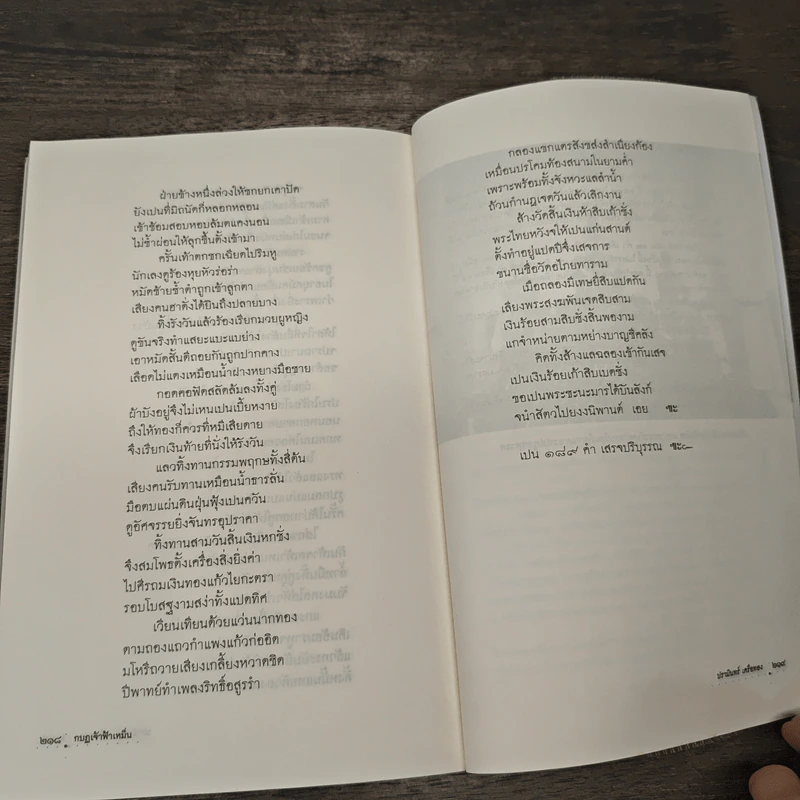 ฝ่ายข้างหนึ่งล่วงให้ชกยกเคาปิด
ยังเปนที่มิถนัดก็หลอกหลอน
เข้าซ้อมสอบหอบล้มตแคงนอน
ไม่ซ้ำผ่อนให้ลุกขึ้นตั้งเข้ามา
ครั้นเท้าตกชกเฉียดไปริมหู
นักเลงดูร้องหุยหัวร่อร่า
หมัดซ้ายซ้ำคำถูกเข้าลูกตา
เสียงคนฮาดังได้ยินถึงปลายบาง
ทิ้งรังวันแล้วร้องเรียกมวยผูหญิง
ดูขันจริงทำแสยะแบะแบย่าง
เอาหมัดสั้นตีถอยกันถูกปากคาง
เลือดไม่แดงเหมือนน้ำฝางหยางมือชาย
กอดคอฟัดสลัดล้มลงทั้งคู่
ผ้ามังอยู่จึงไม่เหนเปนเบี้ยหงาย
ถึงให้ทองก็ศวรที่หมีเสียดาย
จึงเรียกเงินท้ายที่นั่งให้รังวัน
แลวทิ้งทานกรรมพฤกษทั้งสี่ต้น
เสียงคนรับทานเหมือนน้ำธารลั่น
มือตบแผ่นดินฝุ่นฟุ้งเปนควัน
ดูอัศจรรยยิ่งจันทรอุปราคา
ทิ้งทานสามวันสิ้นเงินหกชั่ง
จึงสมโพธตั้งเครื่องสิ่งยิ่งค่า
ไปศีรถมเงินทองแก้วไยกะตรา
รอบโบสฐงามสง่าทั้งแปดทิศ
เวียนเทียนด้วยแว่นนากทอง
ตามถองแถวกำแพงแก้วก่ออิด
มโหรีถวายเสียงเกลี้ยงหวาดชิด
ปี่พาทย์ทำเพลงริทธิ์อสูรรำ
๒๑๘ กบฏเจ้าฟ้าเหม็น
กลองแขกแตรสังขส่งสำเนียงก้อง
เหมือนปรโคมท้องสนามในยามค่ำ
เพราะพร้อมทั้งจังหวะแลลำน้ำ
ถ้วนกำนฎเจดวันแล้วเลิกงาน
ส้างวัดสิ้นเงินห้าสิบเก้าชั่ง
พระไทยหวังจให้เปนแก่นสานต์
ตั้งทำอยู่แปดปีจึ่งเสจการ
ขนานชื่อวัดอไภยทาราม
เมื่อถลองมีเทษยี่สิบแปดกัน
เสียงพระสงฆพันเจดสิบสาม
เงินร้อยสามสิบชั่งสิ้นพองาม
แกจำหน่ายตามหย่างบาญชีคลัง
คิดทั้งส้างแลฉลองเข้ากันเสจ
เปนเงินร้อยเก้าสิบเบดชั่ง
ขอเปนพระชะนะมารได้บันลังก์
จนำสัตวไปยงงนิพานต์ เอย ฃะ
เปน ๑๘๙ คำ เสรจปริบุรรณ ฃะ๛
ปรามินทร์ เครือทอง ๒๑๙